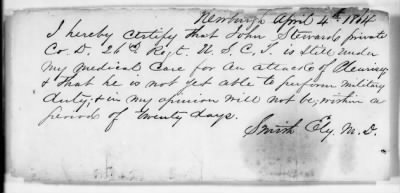 Newburgh April 4th 1864
I hereby certify that John Steward private
Co. D. 26th Regt. U. S. C. T. is still under
my medical care for an attack of Pleurisy
& that he is not yet able to perform military
duty, & in my opinion will not be, within a
period of twenty days.
Smith Ely M. D.